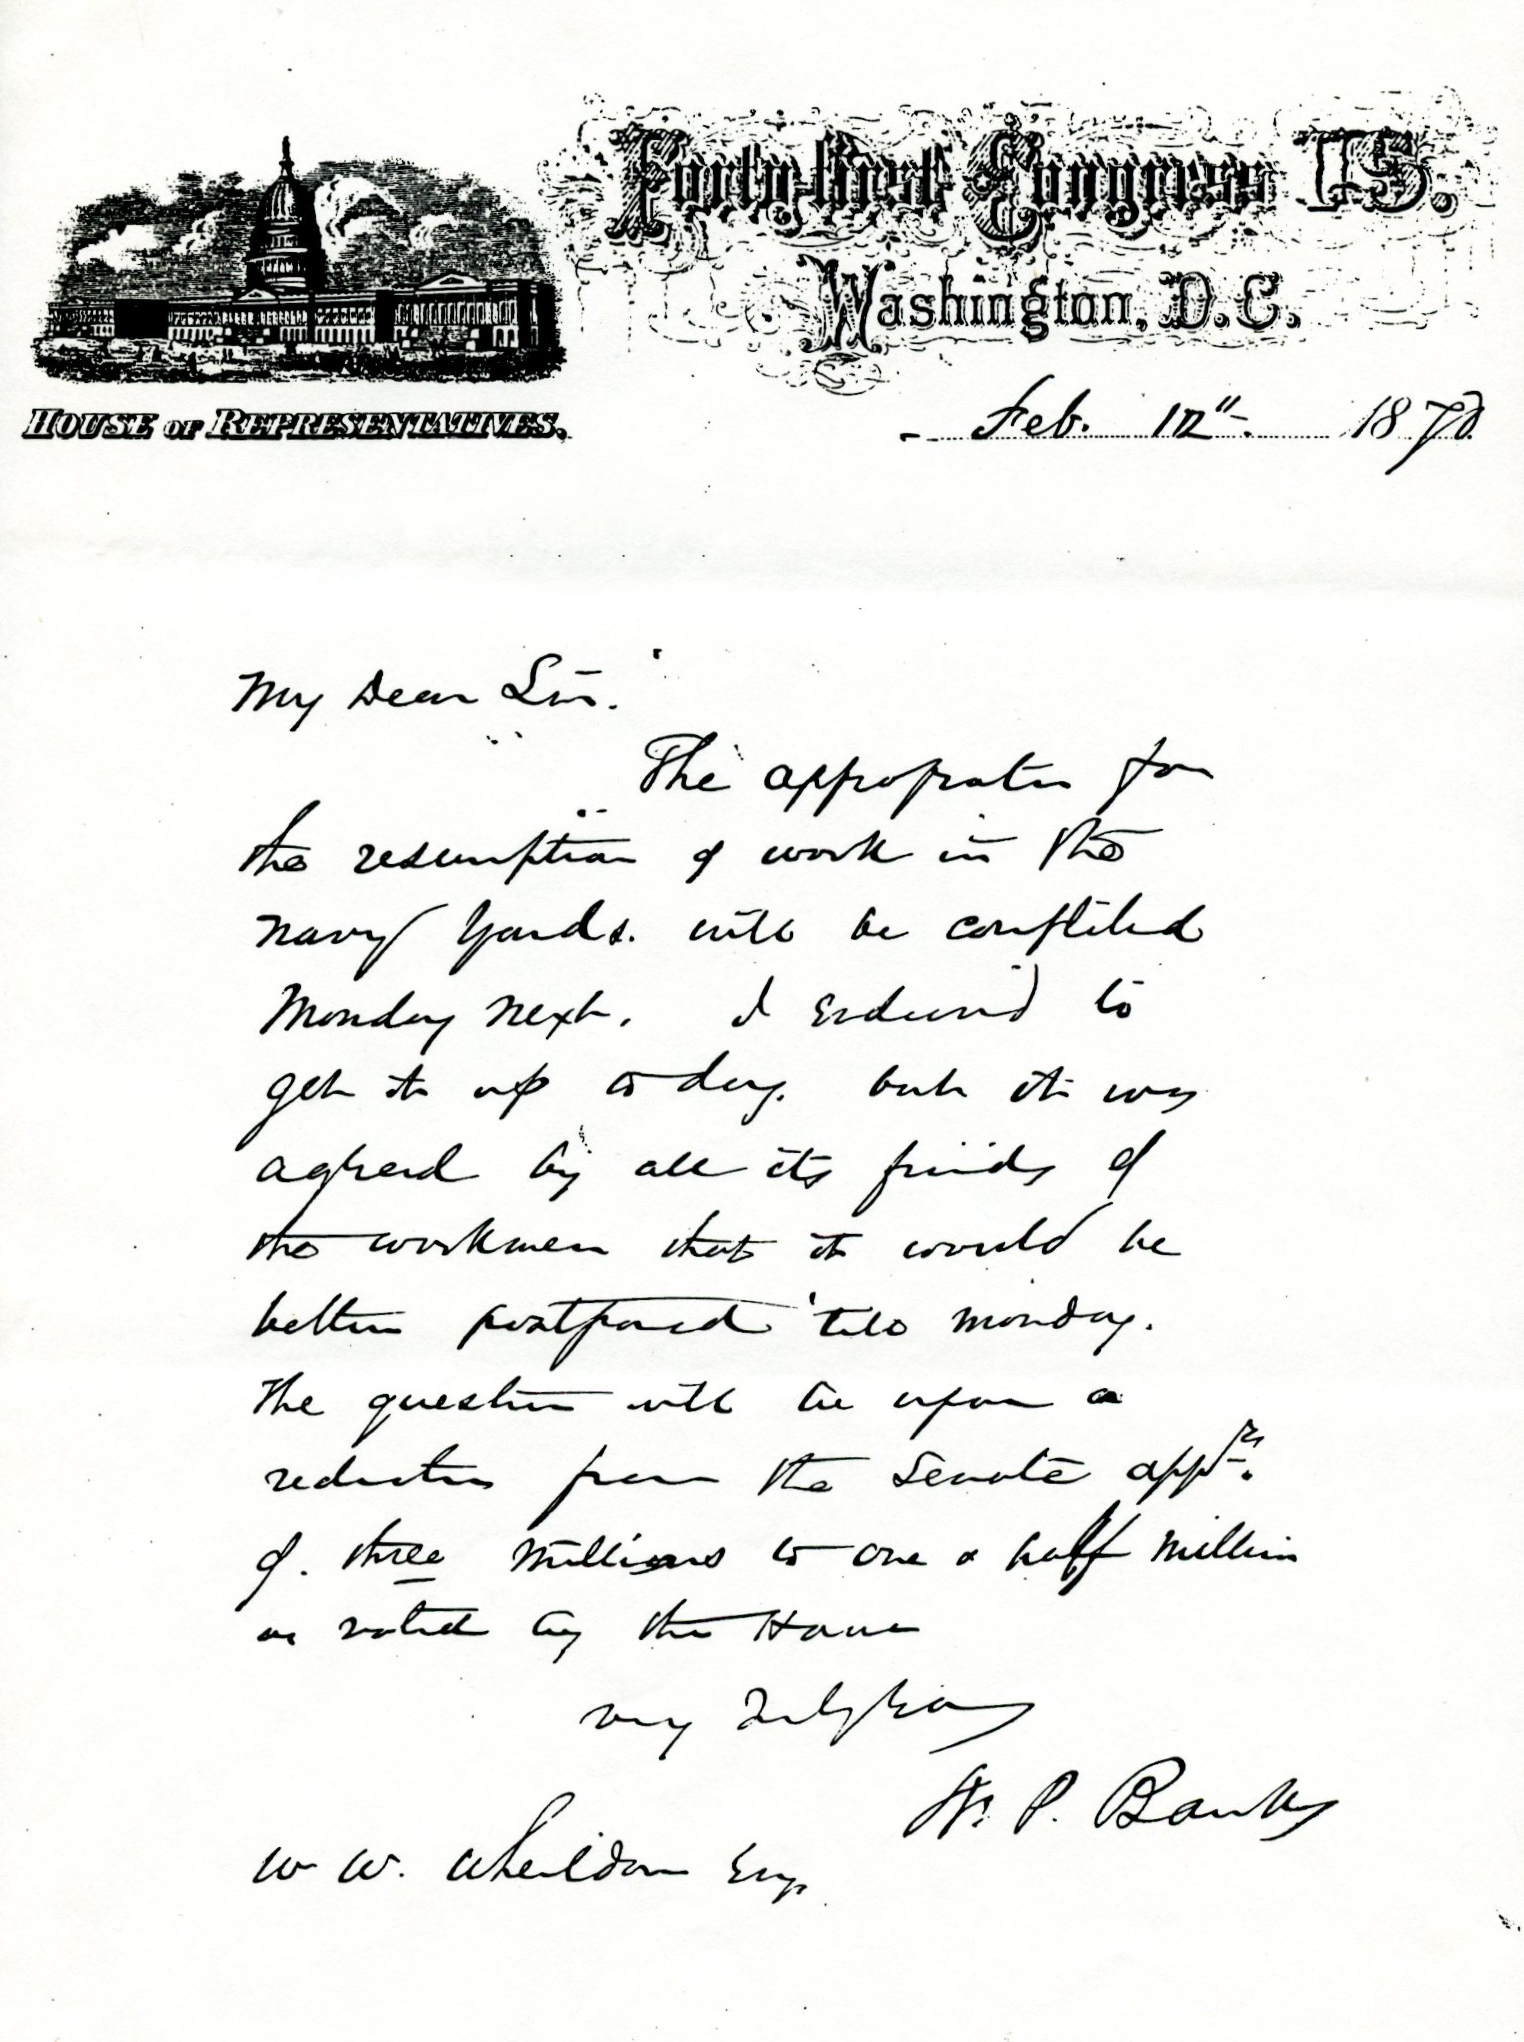 Forty-first Congress U.S.
Washington, D.C.
HOUSE OF REPRESENTATIVES.
Feb. 12". 1870
My Dear Sir.
The appropriation for
the resumption of work in the
navy yards. will be completed
Monday next. I endeavored to
get it up to day. but it was
agreed by all its friends of
the workmen that it would be
better postponed 'till monday.
The question will be upon a
reduction from the Senate appn.
of. three millions to one & half million
as voted by the House
very truly yours
N. P. Banks
W W. Wheildon Esq.